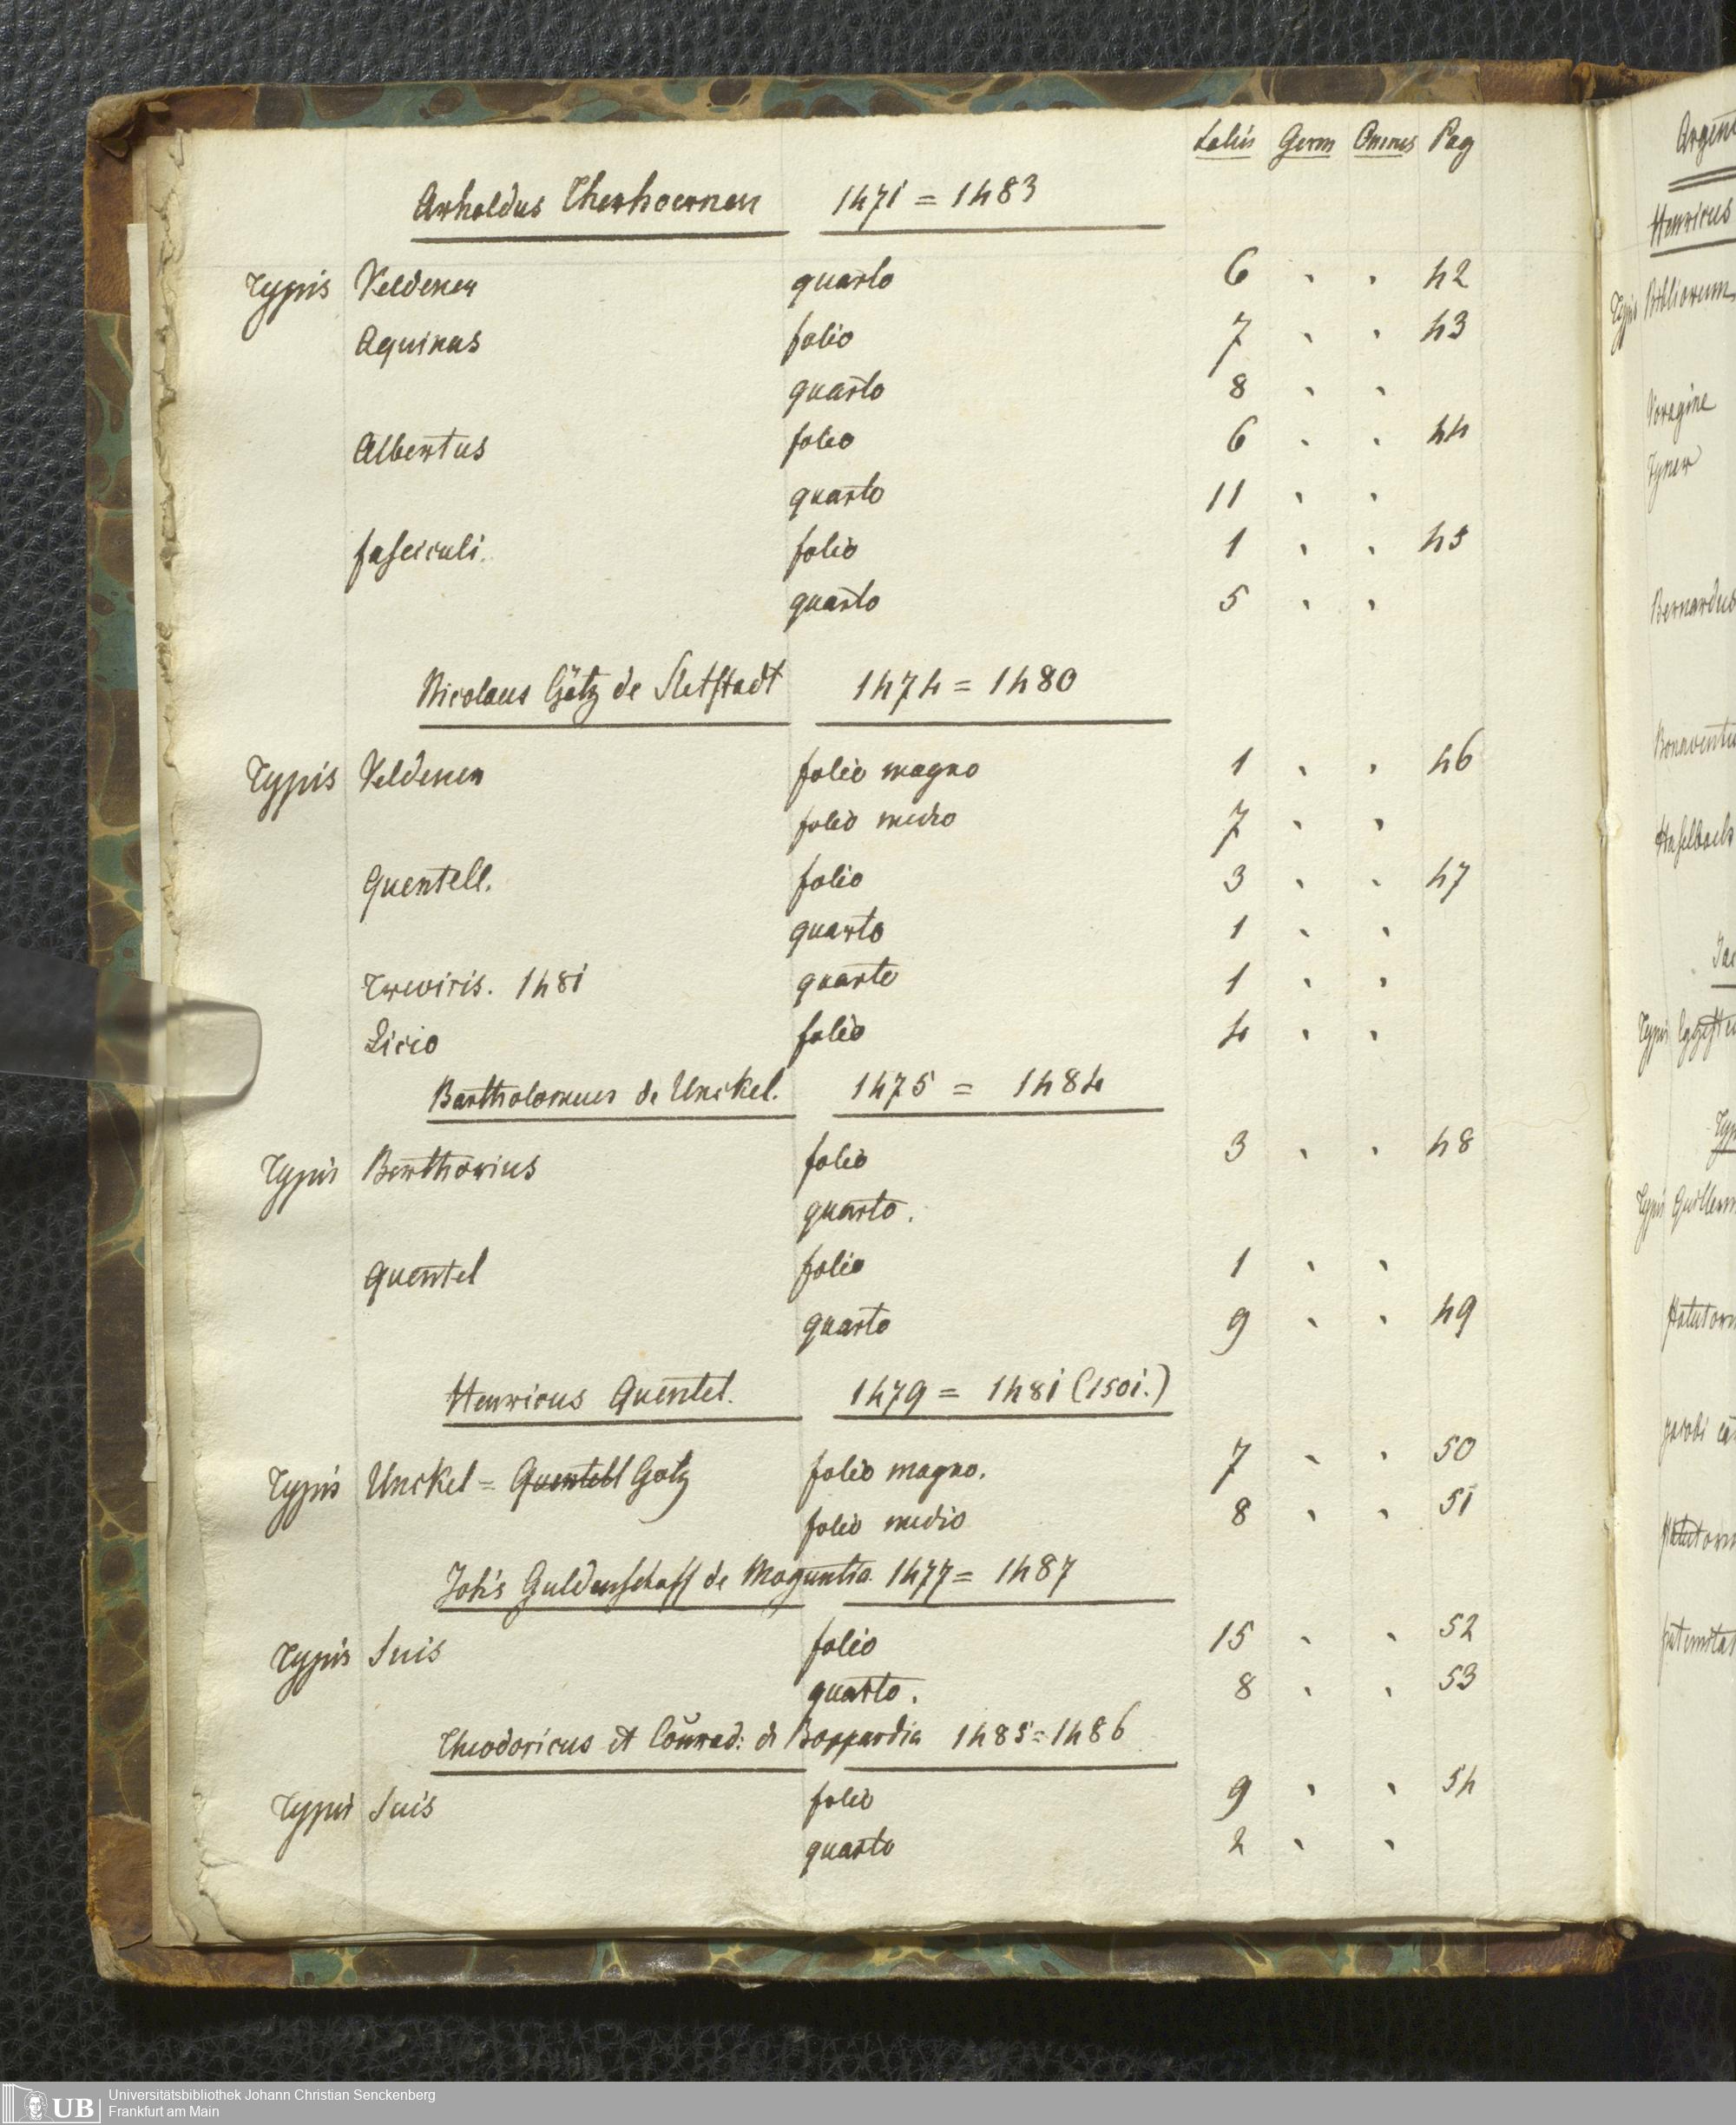 Latin Germ Omnes Pag
Arnoldus Therhoernen 1471 = 1483
Typis Veldener quarto 6 " " 42
Aquinas folio 7 " " 43
quarto 8 " "
Albertus folio 6 " " 44
quarto 11 " "
fasciculi. folio 1 " " 45
quarto 5 " "
Nicolaus Götz de Sletstadt 1474 = 1480
Typis Veldener folio magno 1 " " 46
folio medio 7 " "
Quentell. folio 3 " " 47
quarto 1 " "
Treviris. 1481 quarto 1 " "
Licio folio 4 " "
Bartholomeus de Unckel. 1475 = 1484
Typis Berthorius folio 3 " " 48
quarto.
Quentel folio 1 " "
quarto 9 " " 49
Henricus Quentel. 1479 = 1481 (1501.)
Typis Unckel = Quentell Gotz folio magno. 7 " " 50
folio medio 8 " " 51
Joh's Guldenschaff de Moguntia. 1477 = 1487
Typis Suis folio 15 " " 52
quarto. 8 " " 53
Theodoricus et Conrad: de Boppardia 1485 = 1486
Typis Suis folio 9 " " 54
quarto 2 " "
Henricus
Typis Bibliorum
Voragine
Bernardus
UB Universitätsbibliothek Johann Christian Senckenberg
Frankfurt am Main